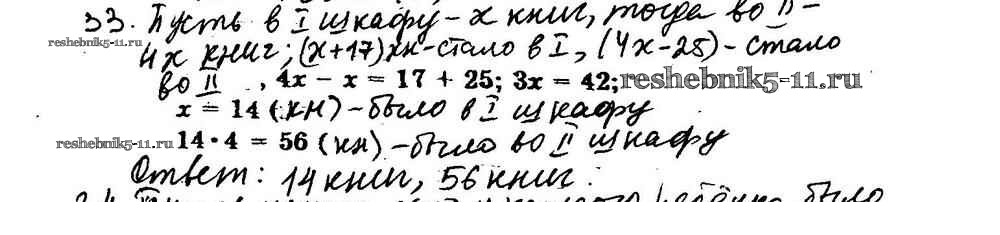 33. Пусть в I шкафу – x книг, тогда во II –
reshebnik5-11.ru
4x книг; (x+17) кн – стало в I, (4x-25) – стало
во II , 4x – x = 17 + 25; 3x = 42; reshebnik5-11.ru
x = 14 (кн) – было в I шкафу
reshebnik5-11.ru 14 • 4 = 56 (кн) – было во II шкафу
Ответ: 14 книг, 56 книг.
было